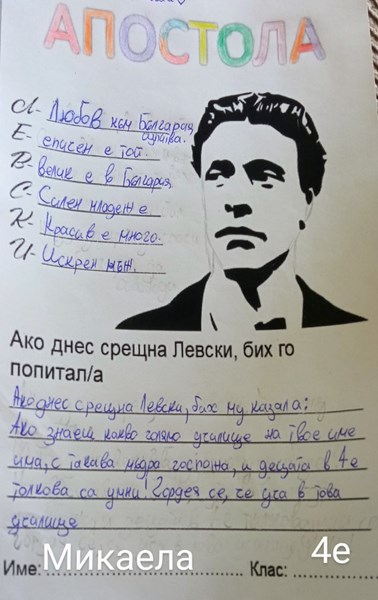 АПОСТОЛА
Л- Любов към България
изпитва.
Е- епичен е той.
В- велик е в България
С- Силен младеж е
К- Красив е много.
И- Искрен мъж.
Ако днес срещна Левски, бих го
попитал/а
Ако днес срещна Левски, бих му казала:
Ако знаеш какво голямо училище на твое име
има, с такава мъдра госпожа, и децата в 4е
толкова са умни! Гордея се, че уча в това
училище
Име: Микаела Клас: 4е